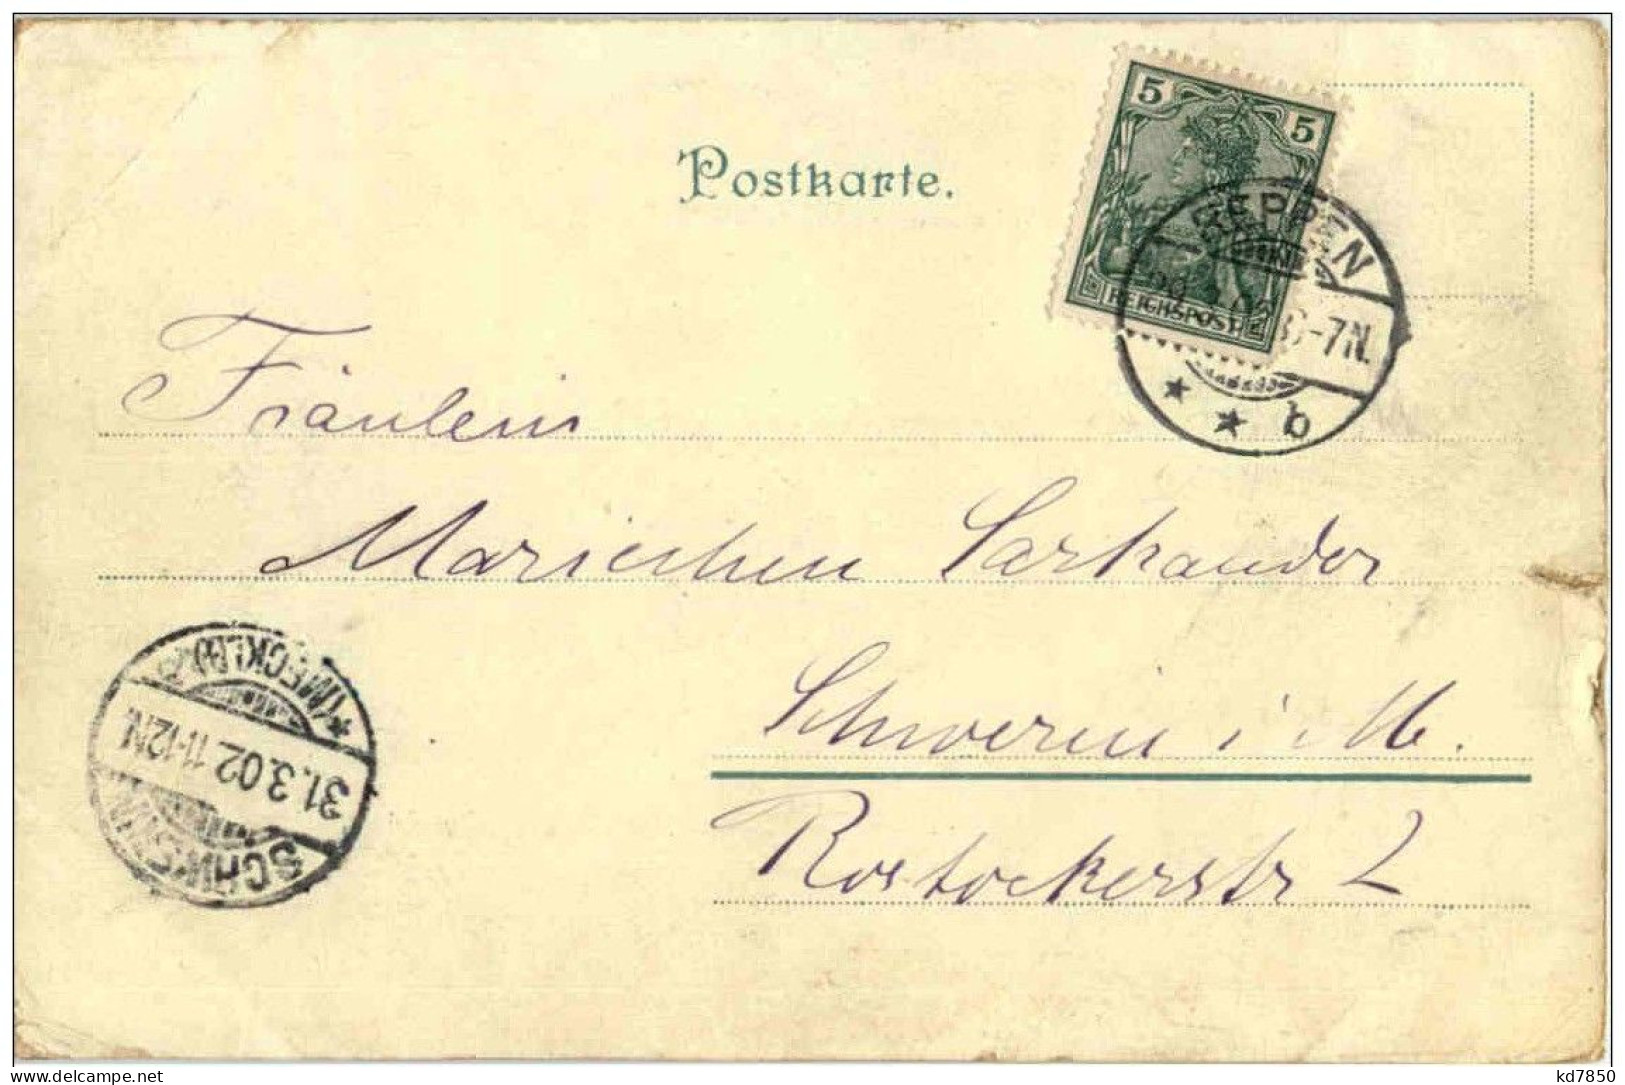 Postkarte.
5 5
REICHSPOST
REPPEN
6-7N.
* * b
Fräulein
Mariechen Sarkander
Schwerin i M.
Rostockerstr 2
SCHWERIN
31.3.02 11-12N.
* (MECKLB)
www.delcampe.net
kd7850